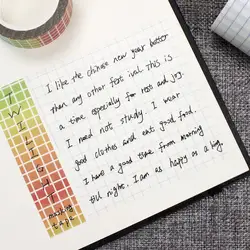 I like the chinese new year better
than any other fest ival. This is
a time especially for rest and joy.
I need not study. I wear
good clothes and eat good food.
I have a good time from morning
till night. I am as happy as a king.
washing
tape